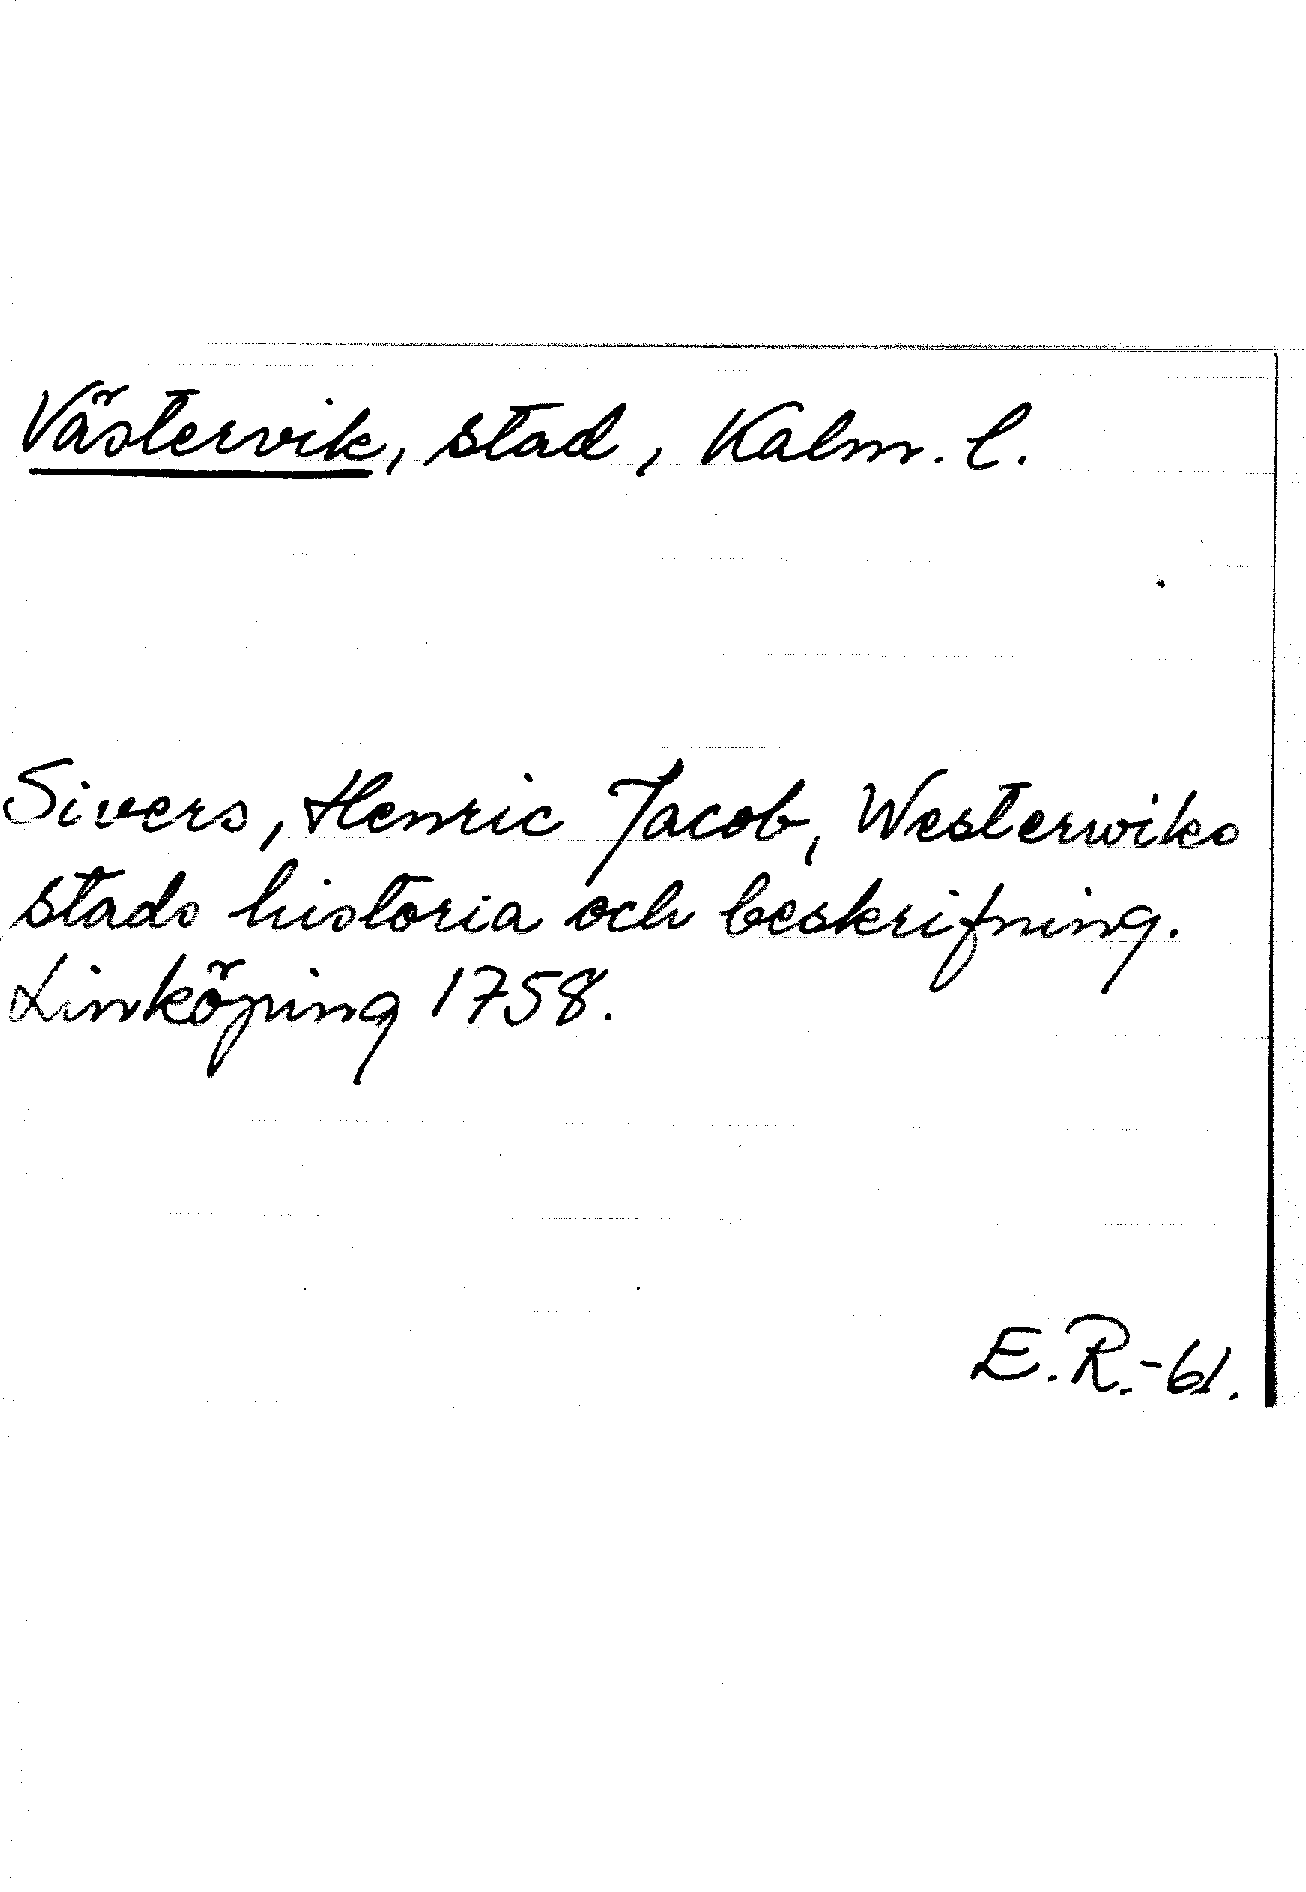 Västervik, stad, Kalm. l.
Sivers, Henric Jacob, Westerwiks
stads historia och beskrifning.
Linköping 1758.
E.R.-61.